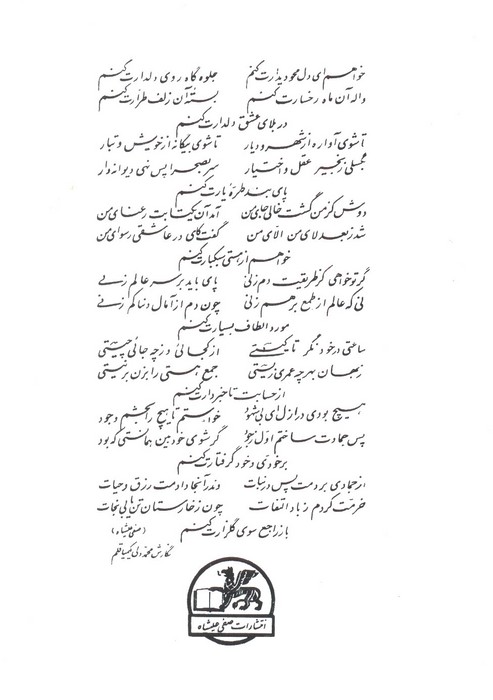 خواهم ای دل محو دیدارت کنم جلوه گاه روی دلدارت کنم
واله آن ماه رخسارت کنم بسته آن زلف طرارت کنم
در بلای عشق دلدارت کنم
تا شوی آواره از شهر و دیار تا شوی بیگانه از خویش و تبار
بگسلی زنجیر عقل و اختیار سر بصحرا پس نهی دیوانه وار
پای بند طره یارت کنم
دوش کز من گشت خالی جای من آمد آن یکتا بت رعنای من
شد ز بعد لای من الای من گفت کای در عاشقی رسوای من
خواهم از هستی سبکبارت کنم
گر تو خواهی کز طریقت دم زنی پای باید بر سر عالم زنی
نی که عالم از طمع بر هم زنی چون دم از آمال دنیا کم زنی
مورد الطاف بسیارت کنم
ساعتی در خود نگر تا کیستی از کجائی و ز چه جائی چیستی
در جهان بهر چه عمری زیستی جمع هستی را بزن بر نیستی
از حسابت تا خبردارت کنم
هیچ بودی در ازل ای بی شهود خواستم تا هیچ را بخشم وجود
پس جمادت ساختم اول ز جود گر شوی خودبین همانستی که بود
بر خودی و خود گرفتارت کنم
از جمادی بردمت پس در نبات وندر آنجا دادمت رزق و حیات
خرمت کردم ز باد التفات چون ز خارستان تن یابی نجات
باز راجع سوی گلزارت کنم
(صفی علیشاه)
نگارش محمد ولی کیمیا قلم
انتشارات صفی علیشاه